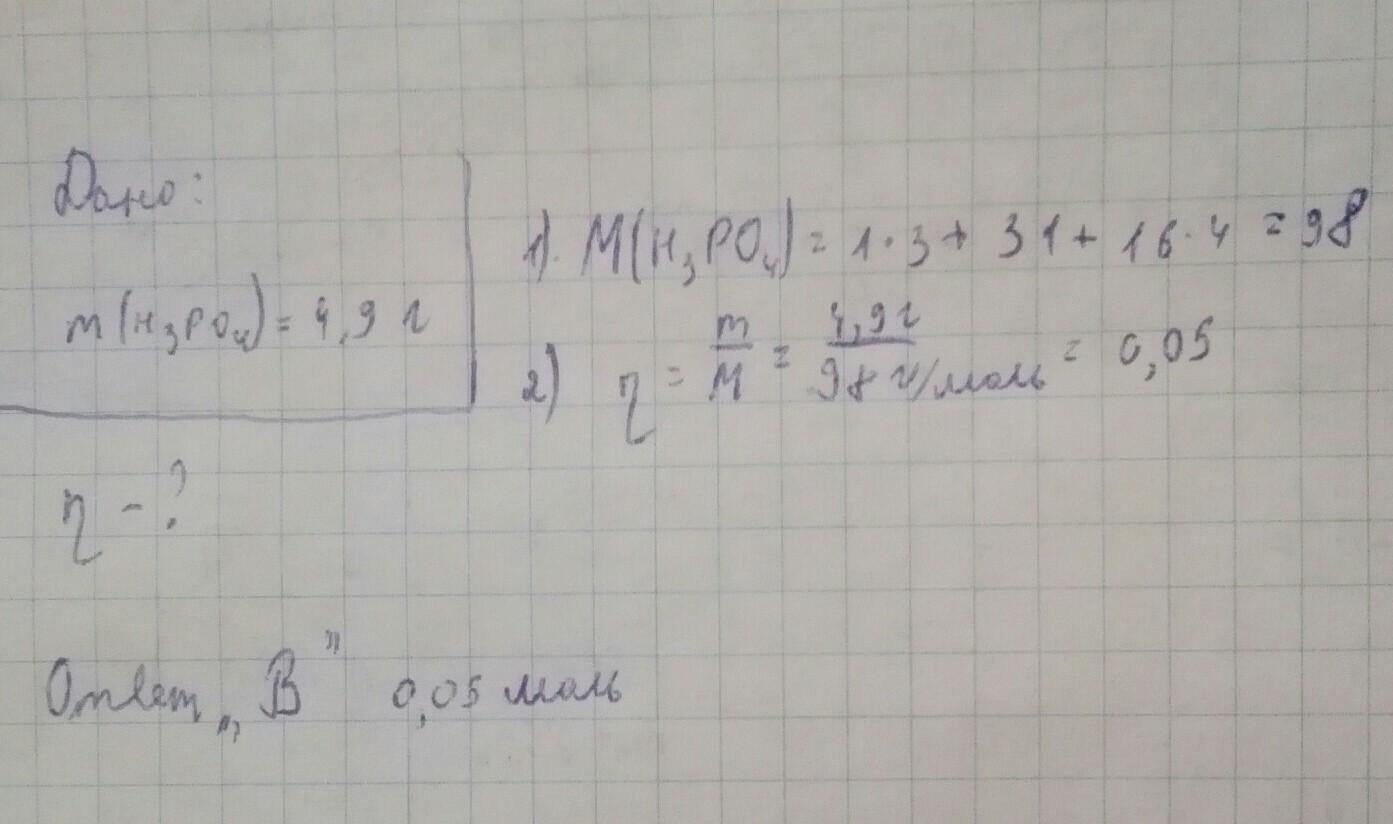 Дано:
m(H₃PO₄) = 4,9 г
η - ?
1). M(H₃PO₄) = 1·3 + 31 + 16·4 = 98
2) η = m/M = 4,9г/98 г/моль = 0,05
Ответ „В” 0,05 моль